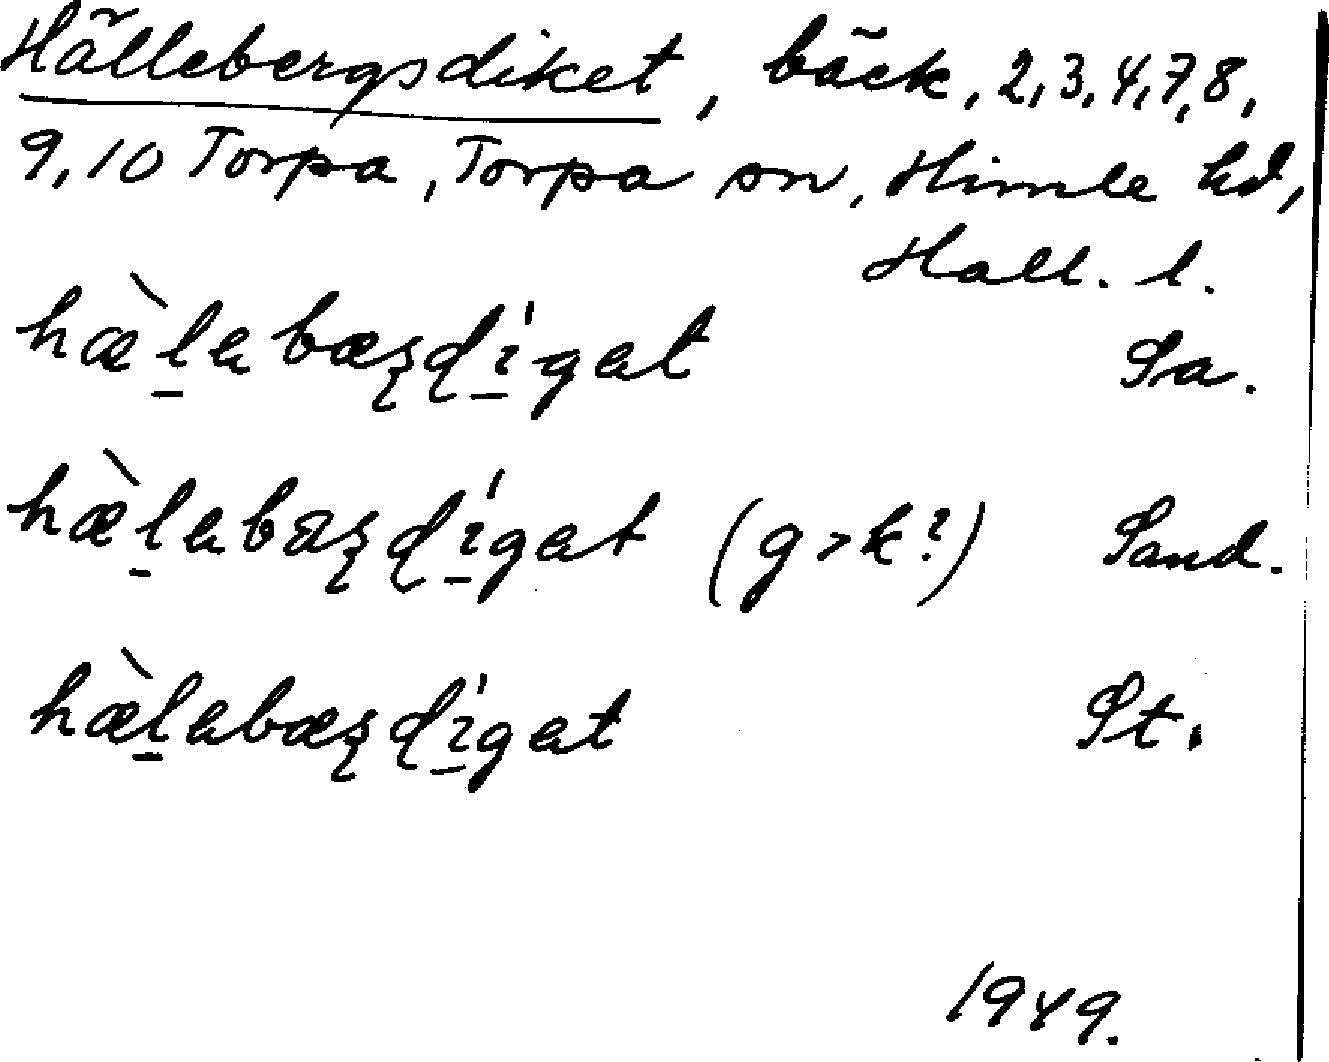 Hällebergsdiket, bäck, 2,3,4,7,8,
9,10 Torpa, Torpa sn, Himle hd,
Hall. l.
hæ̀l̠ebæʂɖí̠get Sa.
hæ̀l̠ebæʂɖí̠get (g>k?) Sand.
hæ̀l̠ebæʂɖí̠get St.
1949.